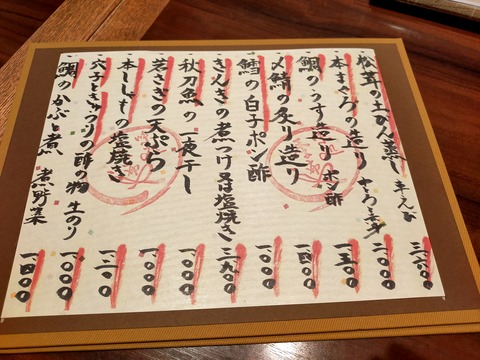 松茸の土びん蒸 車えび 三、六〇〇
本まぐろの造り 二、〇〇〇
鯛のうす造り ポン酢 一、五〇〇
〆鯖の炙り造り 一、四〇〇
鱈の白子ポン酢 一、〇〇〇
きんきの煮つけ又は塩焼き 三、九〇〇
秋刀魚の一夜干し 一、〇〇〇
若さぎの天ぷら 一、〇〇〇
本ししゃもの塩焼き
穴子ときゅうりの酢の物 生のり 一、〇〇〇
鯛のかぶと煮 煮野菜 一、四〇〇